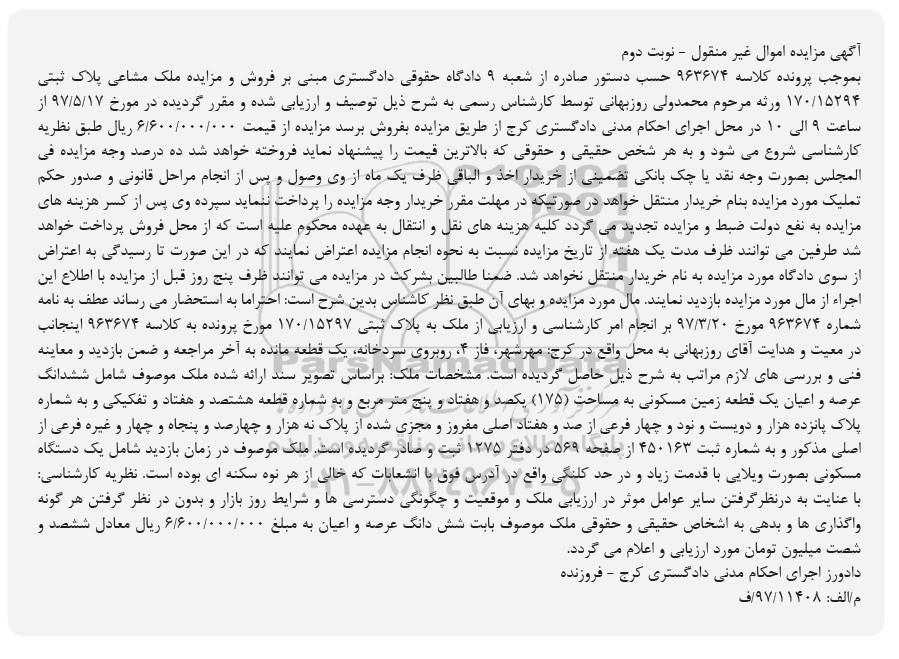 آگهی مزایده اموال غیر منقول - نوبت دوم
بموجب پرونده کلاسه ۹۶۳۶۷۴ حسب دستور صادره از شعبه ۹ دادگاه حقوقی دادگستری مبنی بر فروش و مزایده ملک مشاعی پلاک ثبتی
۱۷۰/۱۵۲۹۴ ورثه مرحوم محمدولی روزبهانی توسط کارشناس رسمی به شرح ذیل توصیف و ارزیابی شده و مقرر گردیده در مورخ ۹۷/۵/۱۷ از
ساعت ۹ الی ۱۰ در محل اجرای احکام مدنی دادگستری کرج از طریق مزایده بفروش برسد مزایده از قیمت ۶/۶۰۰/۰۰۰/۰۰۰ ریال طبق نظریه
کارشناسی شروع می شود و به هر شخص حقیقی و حقوقی که بالاترین قیمت را پیشنهاد نماید فروخته خواهد شد ده درصد وجه مزایده فی
المجلس بصورت وجه نقد یا چک بانکی تضمینی از خریدار اخذ و الباقی ظرف یک ماه از وی وصول و پس از انجام مراحل قانونی و صدور حکم
تملیک مورد مزایده بنام خریدار منتقل خواهد در صورتیکه در مهلت مقرر خریدار وجه مزایده را پرداخت ننماید سپرده وی پس از کسر هزینه های
مزایده به نفع دولت ضبط و مزایده تجدید می گردد کلیه هزینه های نقل و انتقال به عهده محکوم علیه است که از محل فروش پرداخت خواهد
شد طرفین می توانند ظرف مدت یک هفته از تاریخ مزایده نسبت به نحوه انجام مزایده اعتراض نمایند که در این صورت تا رسیدگی به اعتراض
از سوی دادگاه مورد مزایده به نام خریدار منتقل نخواهد شد. ضمنا طالبین بشرکت در مزایده می توانند ظرف پنج روز قبل از مزایده با اطلاع این
اجراء از مال مورد مزایده بازدید نمایند. مال مورد مزایده و بهای آن طبق نظر کاشناس بدین شرح است: احتراما به استحضار می رساند عطف به نامه
شماره ۹۶۳۶۷۴ مورخ ۹۷/۳/۲۰ بر انجام امر کارشناسی و ارزیابی از ملک به پلاک ثبتی ۱۷۰/۱۵۲۹۷ مورخ پرونده به کلاسه ۹۶۳۶۷۴ اینجانب
در معیت و هدایت آقای روزبهانی به محل واقع در کرج: مهرشهر، فاز ۴، روبروی سردخانه، یک قطعه مانده به آخر مراجعه و ضمن بازدید و معاینه
فنی و بررسی های لازم مراتب به شرح ذیل حاصل گردیده است. مشخصات ملک: براساس تصویر سند ارائه شده ملک موصوف شامل ششدانگ
عرصه و اعیان یک قطعه زمین مسکونی به مساحت (۱۷۵) یکصد و هفتاد و پنج متر مربع و به شماره قطعه هشتصد و هفتاد و تفکیکی و به شماره
پلاک پانزده هزار و دویست و نود و چهار فرعی از صد و هفتاد اصلی مفروز و مجزی شده از پلاک نه هزار و چهارصد و پنجاه و چهار و غیره فرعی از
اصلی مذکور و به شماره ثبت ۴۵۰۱۶۳ از صفحه ۵۶۹ در دفتر ۱۲۷۵ ثبت و صادر گردیده است. ملک موصوف در زمان بازدید شامل یک دستگاه
مسکونی بصورت ویلایی با قدمت زیاد و در حد کلنگی واقع در آدرس فوق با انشعابات که خالی از هر نوه سکنه ای بوده است. نظریه کارشناسی:
با عنایت به درنظرگرفتن سایر عوامل موثر در ارزیابی ملک و موقعیت و چگونگی دسترسی ها و شرایط روز بازار و بدون در نظر گرفتن هر گونه
واگذاری ها و بدهی به اشخاص حقیقی و حقوقی ملک موصوف بابت شش دانگ عرصه و اعیان به مبلغ ۶/۶۰۰/۰۰۰/۰۰۰ ریال معادل ششصد و
شصت میلیون تومان مورد ارزیابی و اعلام می گردد.
دادورز اجرای احکام مدنی دادگستری کرج - فروزنده
م/الف: ۹۷/۱۱۴۰۸/ف
ParsNamadData
پایگاه اطلاع رسانی مناقصه و مزایده
۰۲۱-۸۸۳۴۹۶۷۰-۵